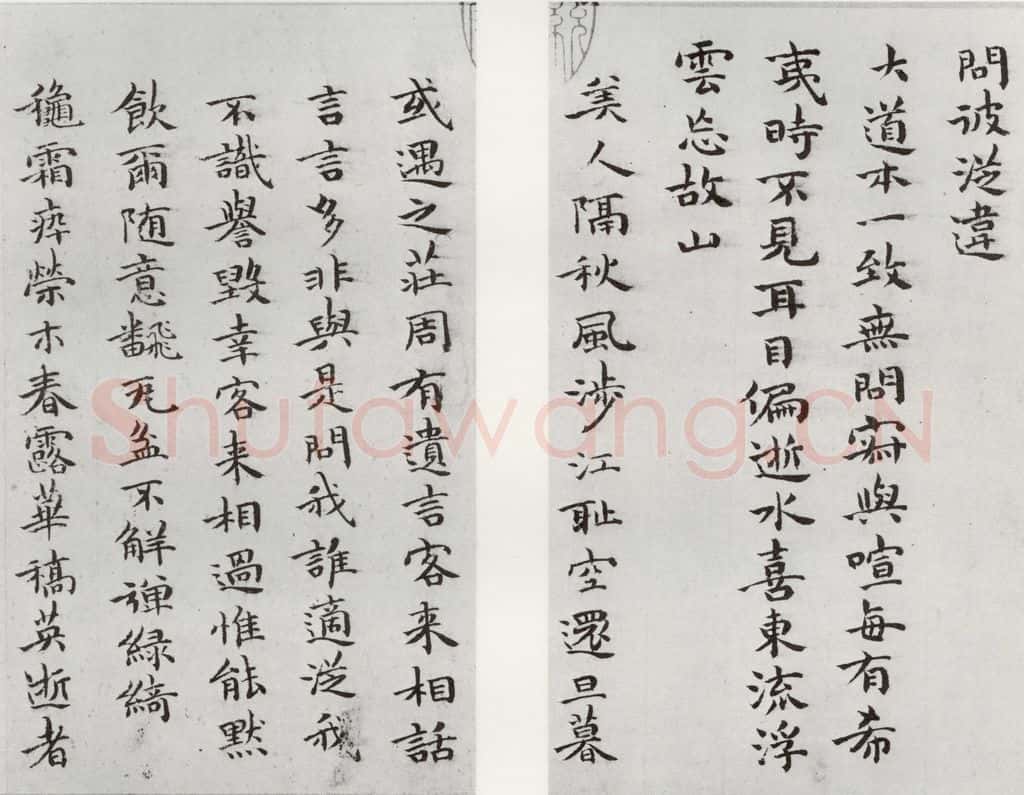 問彼從違
大道本一致無問寂與喧每有希
夷時不見耳目偏逝水喜東流浮
雲忘故山
美人隔秋風涉江耻空還旦暮
或遇之莊周有遺言客来相話
言言多非與是問我誰適從我
不識譽毀幸客来相過惟能默
飲爾随意飜瓦盆不解禪緑綺
穐霜瘁榮木春露華稿英逝者
Shufawang.CN